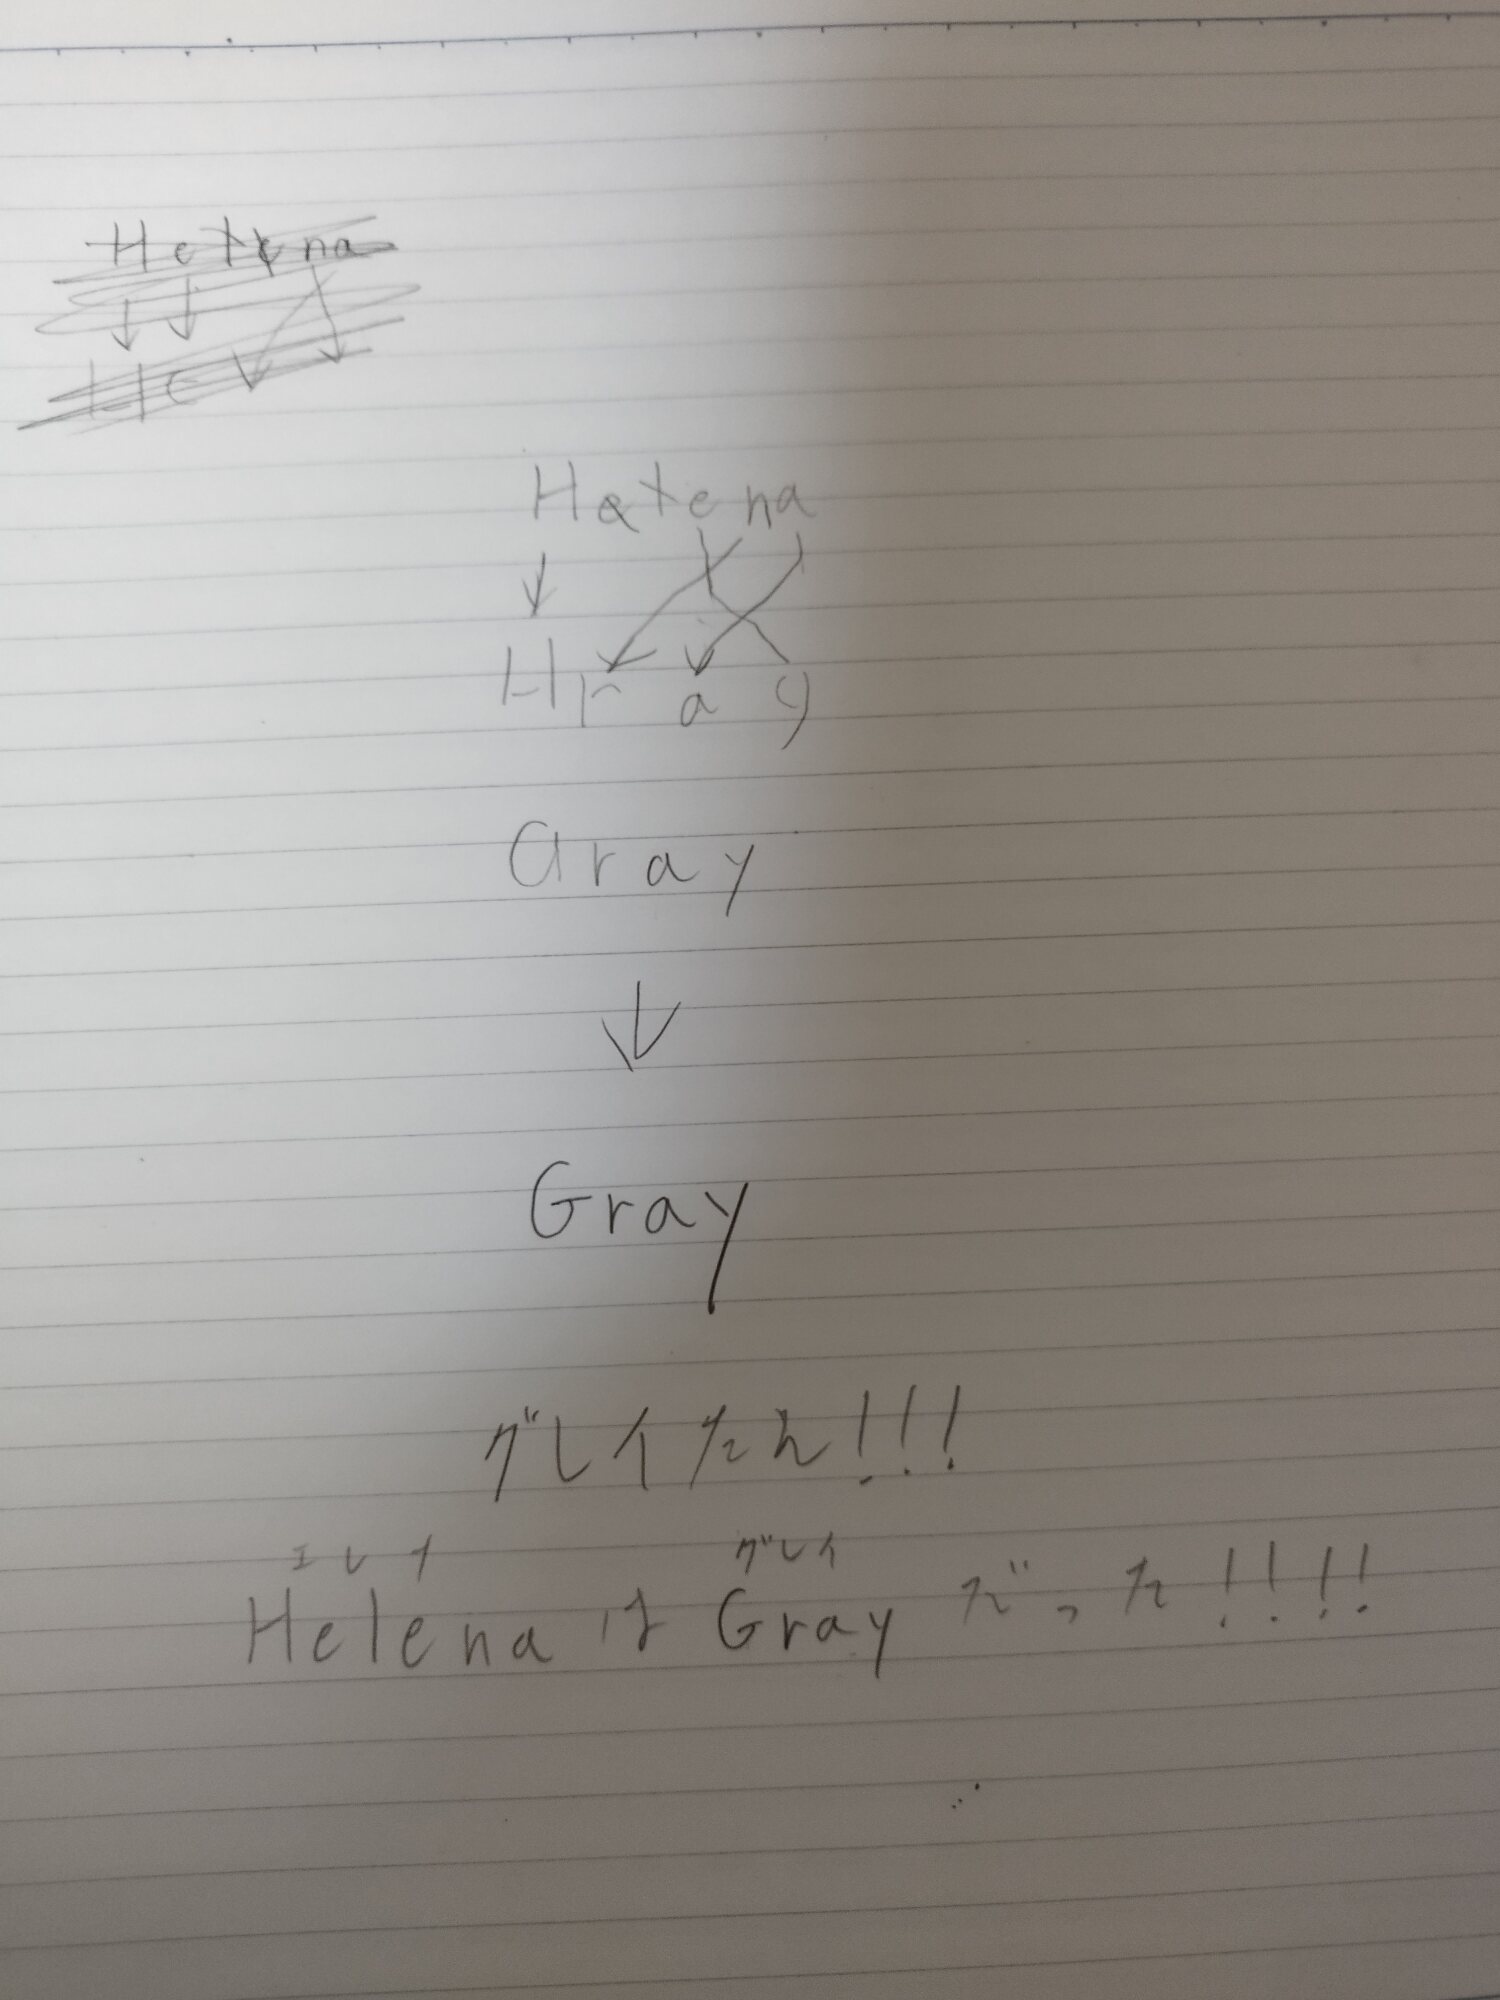 Hetena
He
Hatena
Hray
Gray
Gray
グレイたん!!!
エレナ グレイ
Helena は Gray だった!!!!